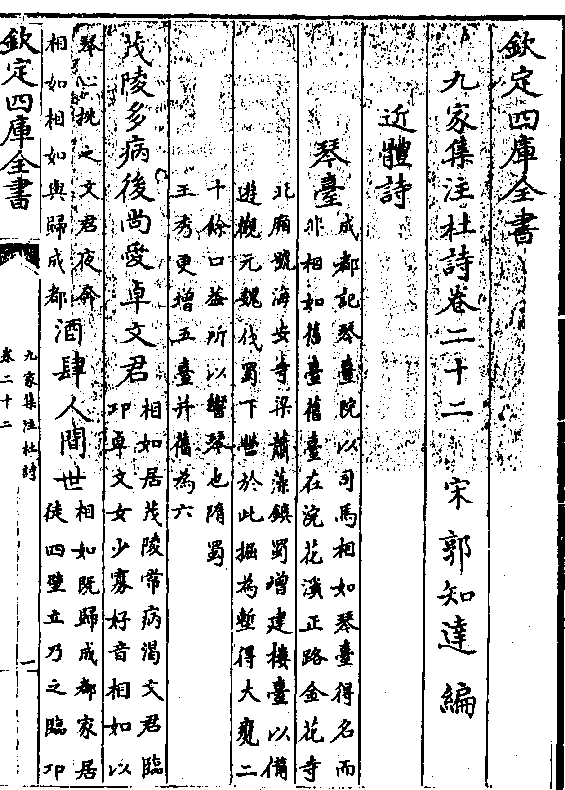 欽定四庫全書
九家集注杜詩卷二十二　宋　郭知達　編
近體詩
琴臺成都記琴臺院以司馬相如琴臺得名而
非相如舊臺舊臺在浣花溪正路金花寺
北廂號海安寺梁蕭藻鎮蜀增建樓臺以備
遊觀元魏伐蜀下營於此掘為塹得大甕二
十餘口蓋所以響琴也隋蜀
王秀更增五臺并舊為六
茂陵多病後尚愛卓文君相如居茂陵常病渴文君臨
卭卓文女少寡好音相如以
琴心挑之文君夜奔
相如相如與歸成都酒肆人間世相如既歸成都家居
徒四壁立乃之臨卭
欽定四庫全書
九家集注杜詩
卷二十二
一